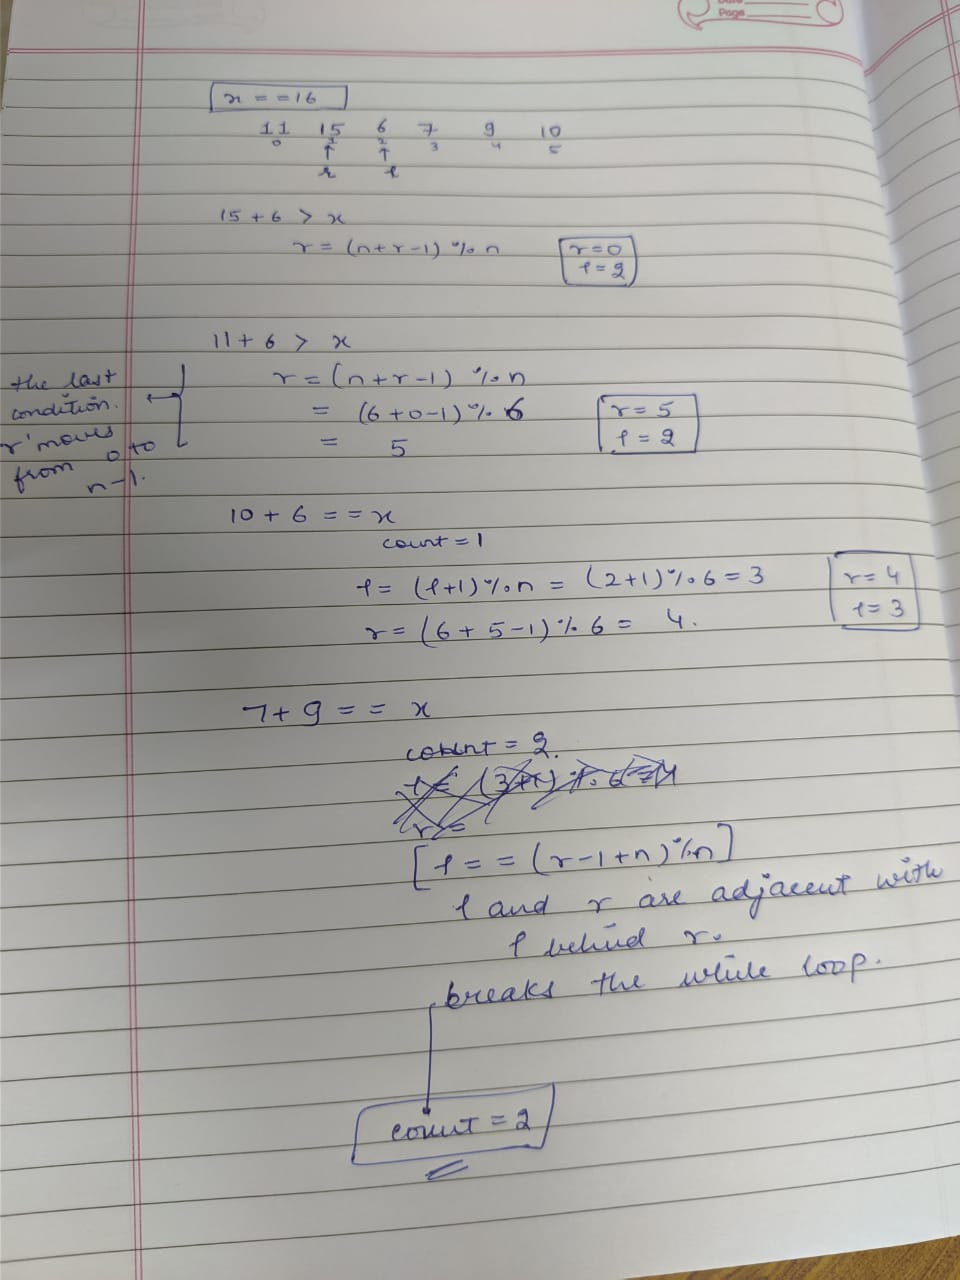 Page
x = = 16
11 15 6 7 9 10
0 1 2 3 4 5
↑ ↑
r l
15 + 6 > x
r = (n+r-1) % n
r=0
l=2
11 + 6 > x
r = (n+r-1) % n
= (6+0-1) % 6
= 5
r = 5
l = 2
the last
condition.
'r' moves
from 0 to
n-1.
10 + 6 = = x
count = 1
l = (l+1) % n = (2+1) % 6 = 3
r = (6 + 5 - 1) % 6 = 4.
r = 4
l = 3
7 + 9 = = x
count = 2.
[l = = (r-1+n) % n]
l and r are adjacent with
l behind r.
breaks the while loop.
count = 2